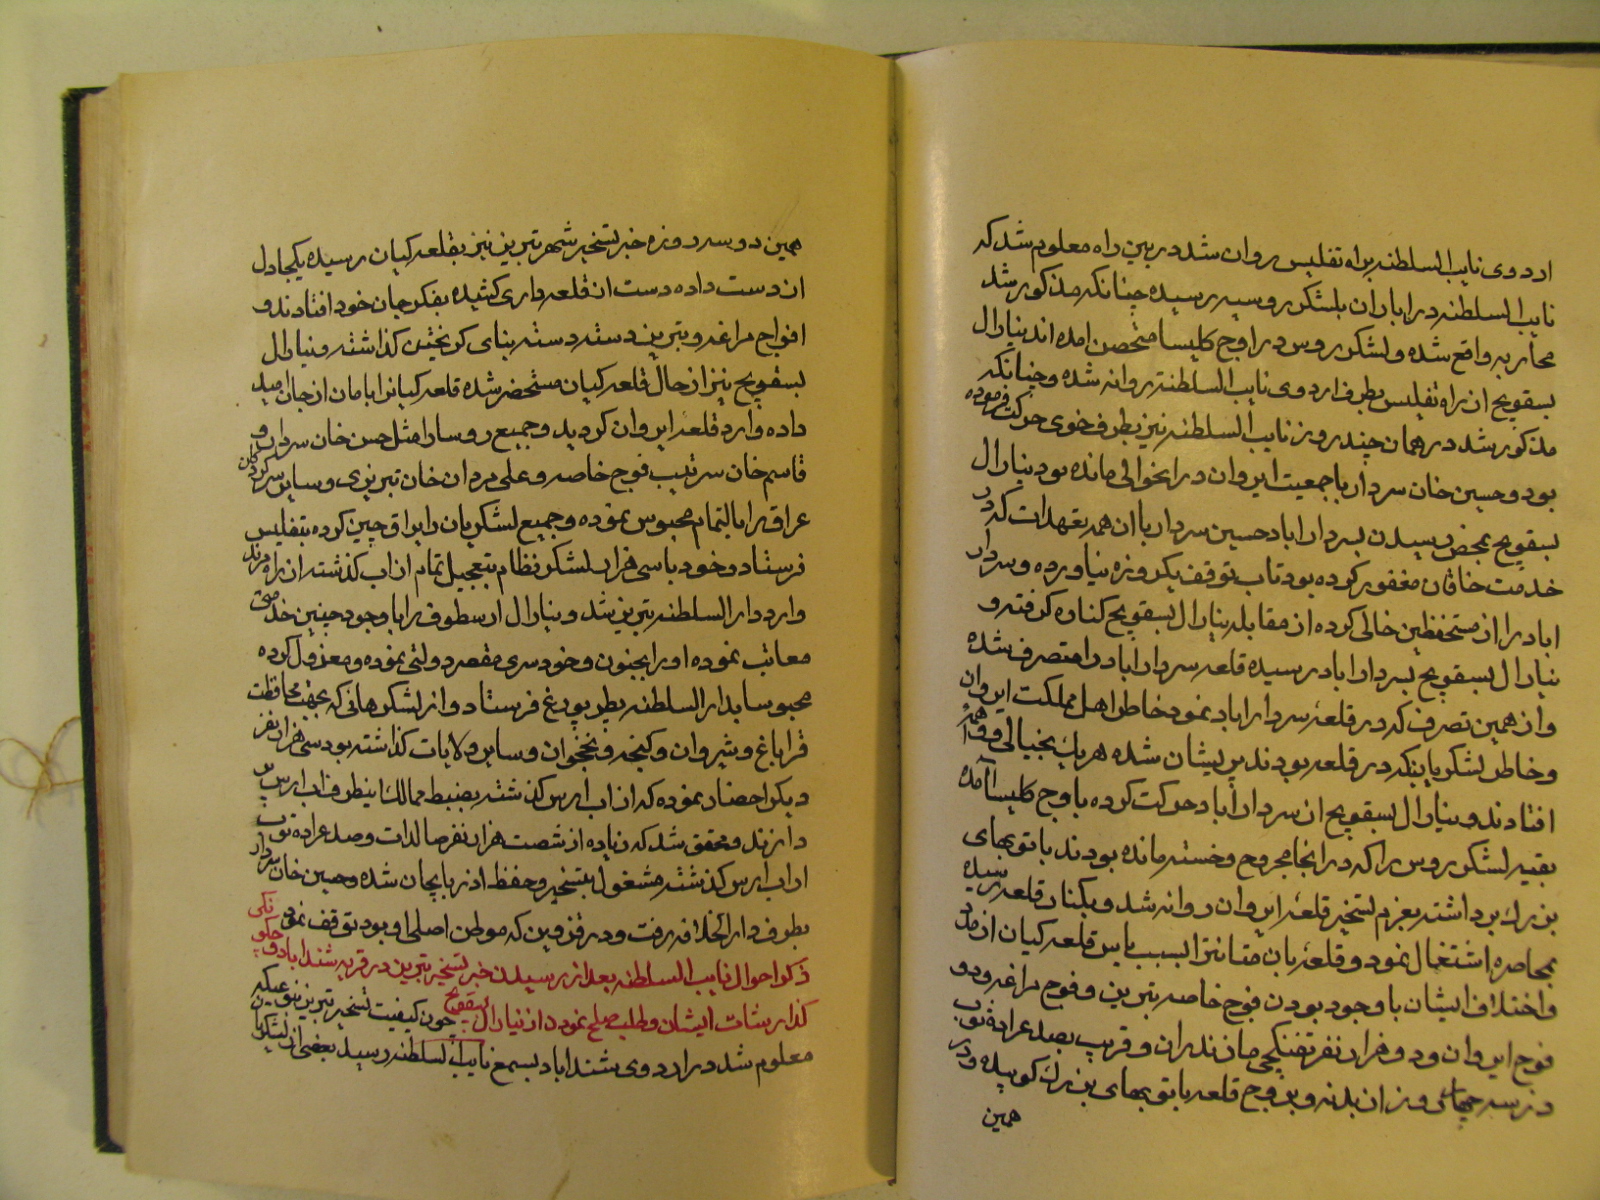 اردوی نایب السلطنه براه تفلیس روان شد در بین راه معلوم شد که
نایب السلطنه در اباران بلشکر روسیه رسیده چنانکه مذکور شد
محاربه واقع شده و لشکر روس در اوچ کلیسا متحصن امده اند ینارال
بسقویچ از راه تفلیس بطرف اردوی نایب السلطنه روانه شده و چنانکه
مذکور شد در همان چند روز نایب السلطنه نیز بطرف خوی حرکت فرموده
بود و حسین خان سردار با جمعیت ایروان در انحوالی مانده بود ینارال
بسقویچ بمحض رسیدن بسردار اباد حسین سردار با ان همه تعهدات که در
خدمت خاقان مغفور کرده بود تاب توقف یکروزه نیاورده و سردار
اباد را از مستحفظین خالی کرده از مقابله ینارال بسقویچ کناره گرفته و
ینارال بسقویچ بسردار اباد رسیده قلعه سردار اباد را متصرف شده
و از همین تصرف که در قلعهٔ سردار اباد نمود خاطر اهل مملکت ایروان
و خاطر لشکریانیکه در قلعه بودند پریشان شده هر یک بخیالی و
افتادند و ینارال بسقویچ از سردار اباد حرکت کرده باوچ کلیسا آمده
بقیه لشکر روس را که در انجا مجروح و خسته مانده بودند با توبهای
بزرک برداشته بعزم تسخیر قلعهٔ ایروان روانه شد و بکنار قلعه رسیده
بمحاصره اشتغال نمود و قلعه یان متانترا بسبب یاس قلعه کیان از مدد
و اختلاف ایشان با وجود بودن فوج خاصه تبریز و فوج مراغه و دو
فوج ایروان و دو هزار نفر تفنکچی مازندران و قریب بصد عراده توب
در سه چهار روز ان بدنه و بروج قلعه با توبهای بزرک کوبیده و در
همین
همین دو سه روزه خبر تسخیر شهر تبریز نیز بقلعه کیان رسیده یکجا دل
از دست داده دست از قلعه داری کشیده بفکر جان خود افتادند و
افواج مراغه و تبریز دسته دسته بنای کریختن کذاشته و ینارال
بسقویچ نیز از حال قلعه کیان مستحضر شده قلعه کیانرا بامان از جان امید
داده وارد قلعهٔ ایروان کردید و جمیع روسا را مثل حسن خان سردار و
قاسم خان سرتیب فوج خاصه و علی مردان خان تبریزی و سایر سرکردکان
عراق را بالتمام محبوس نموده و جمیع لشکریان را یراق چین کرده بتفلیس
فرستاد و خود با سی هزار لشکر نظام بتعجیل تمام از اب کذشته از راه مرند
وارد دار السلطنه تبریز شد و ینارال ارسطوف را با وجود چنین خدمتی
معاتب نموده او را بجنون و خودسری مقصر دولتی نموده و معزول کرده
محبوسا بدار السلطنه بطربورغ فرستاد و از لشکرهائی که بجهت محافظت
قراباغ و شیروان و کنجه و نخجوان و سایر ولایات کذاشته بود سی هزار نفر
دیکر احضار نموده که از اب ارس کذشته بضبط ممالک اینطرف اب ارس
دارند و محقق شد که زیاده از شصت هزار نفر صالدات و صد عراده توب
از اب ارس کذشته مشغول بتسخیر و حفظ اذربایجان شده و حسین خان سردار
بطرف دار الخلافه رفت و در قزوین که موطن اصلی او بود توقف نمود
ذکر احوال نایب السلطنه بعد از رسیدن خبر تسخیر تبریز در قریه شنداباد و چکونکی
کذارشات ایشان و طلب صلح نمودن از ینارال بسقویچ چون کیفیت تسخیر تبریز بنوعیکه
معلوم شد در اردوی شنداباد بسمع نایب السلطنه رسید بعضی از لشکر